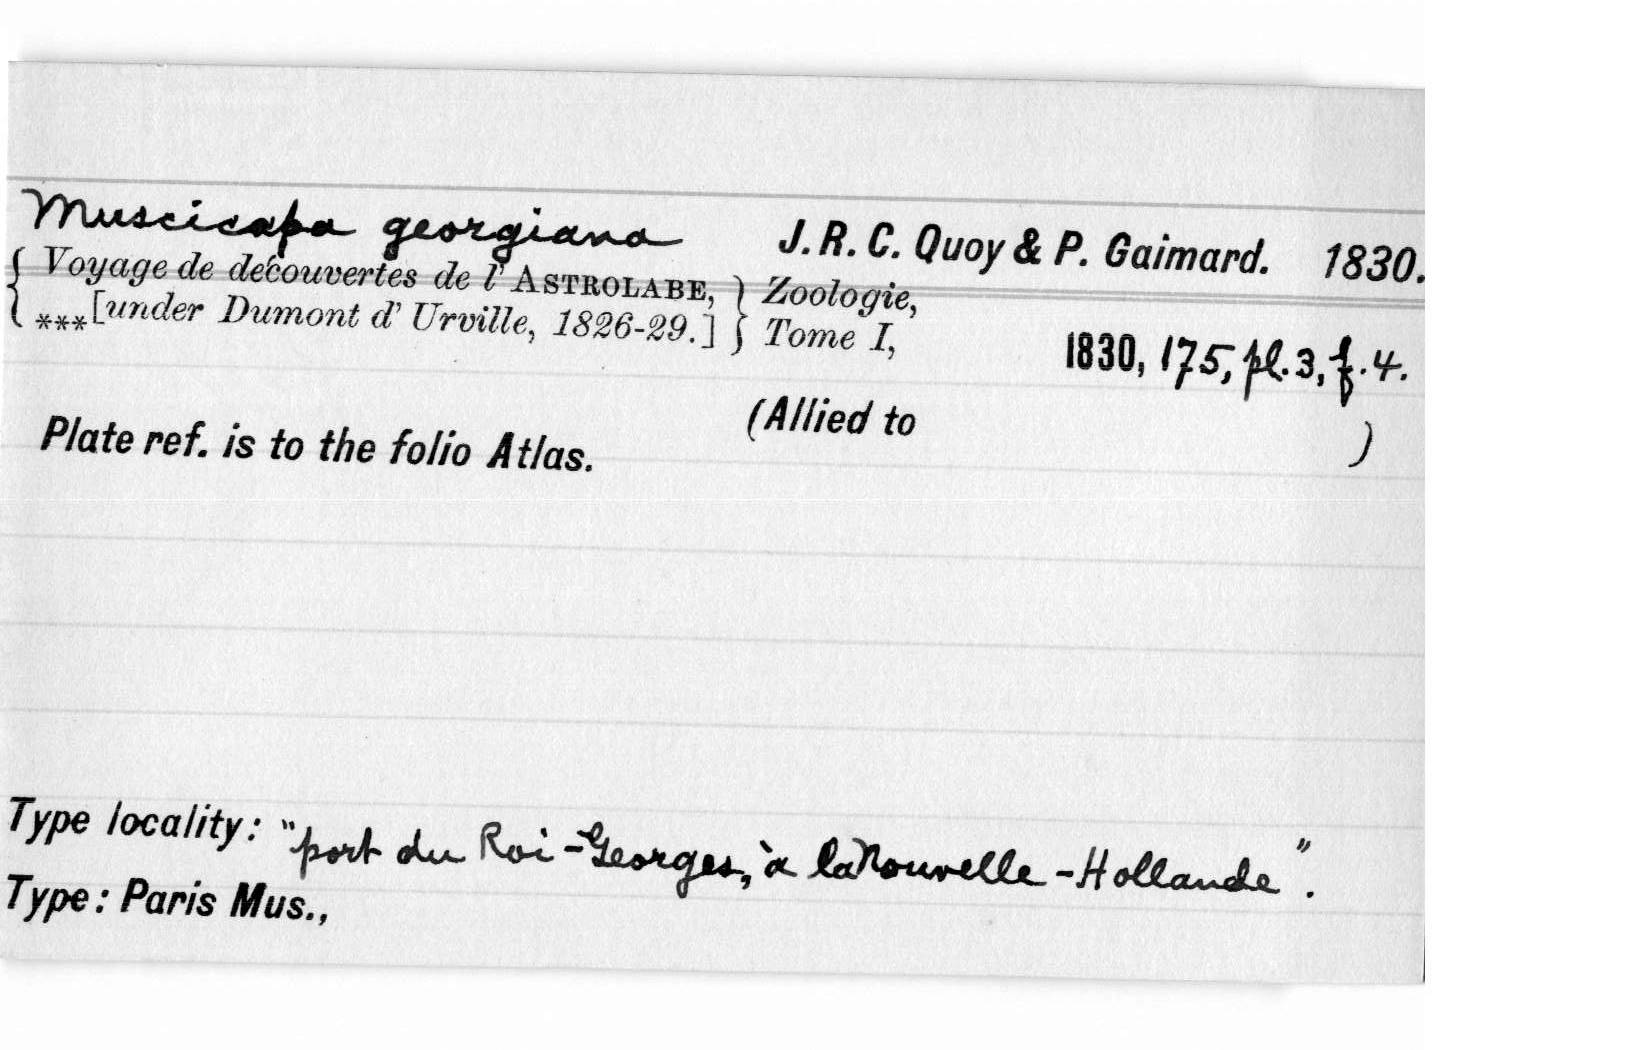 Muscicapa georgiana J. R. C. Quoy & P. Gaimard. 1830.
{ Voyage de découvertes de l' ASTROLABE, } Zoologie,
{ ***[under Dumont d' Urville, 1826-29.] } Tome I,
1830, 175, pl. 3, f. 4.
(Allied to )
Plate ref. is to the folio Atlas.
Type locality: "port du Roi-Georges, à la Nouvelle-Hollande".
Type: Paris Mus.,